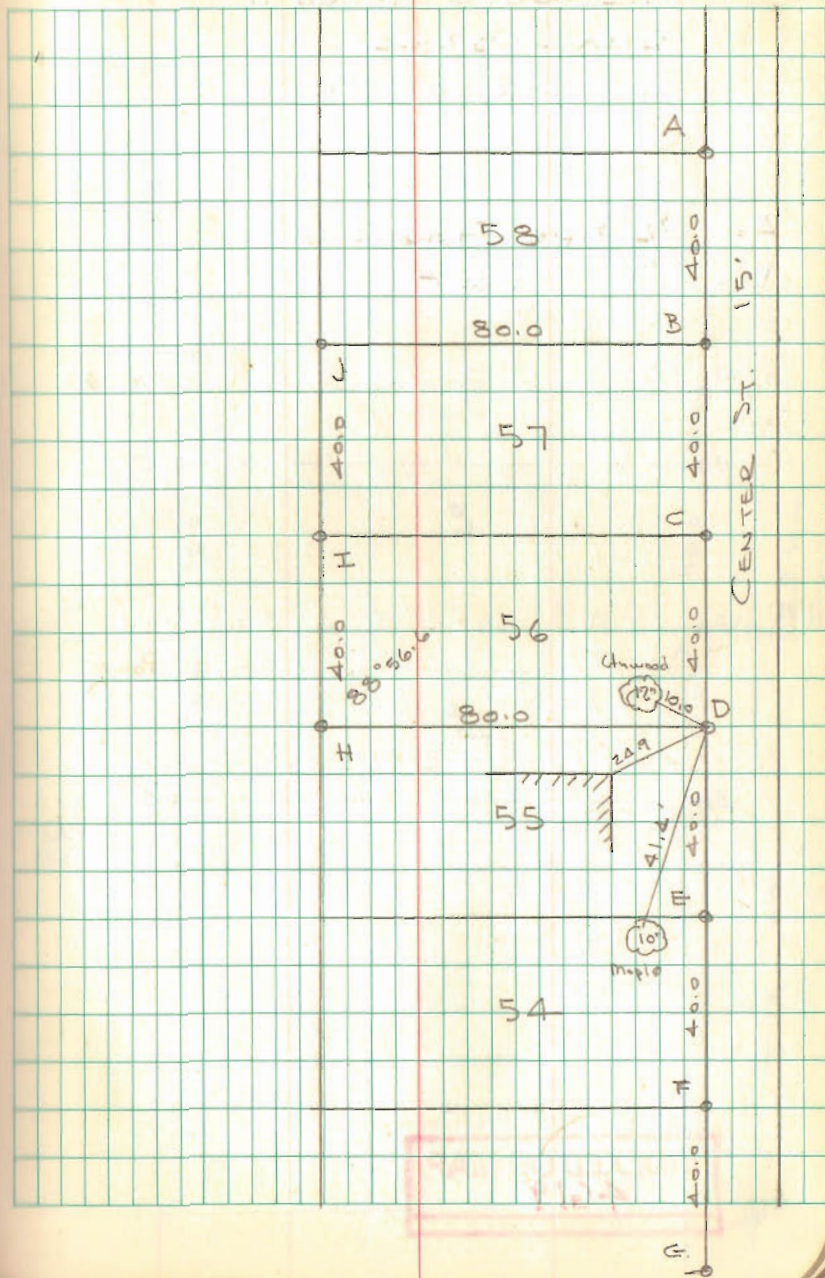 A
58
40.0
15'
80.0
B
J
40.0
57
40.0
CENTER ST.
C
I
40.0
56
40.0
88° 56.6
12"
10.0
80.0
D
H
24.9
55
40.0
41.4'
E
10"
Maple
54
40.0
F
40.0
G